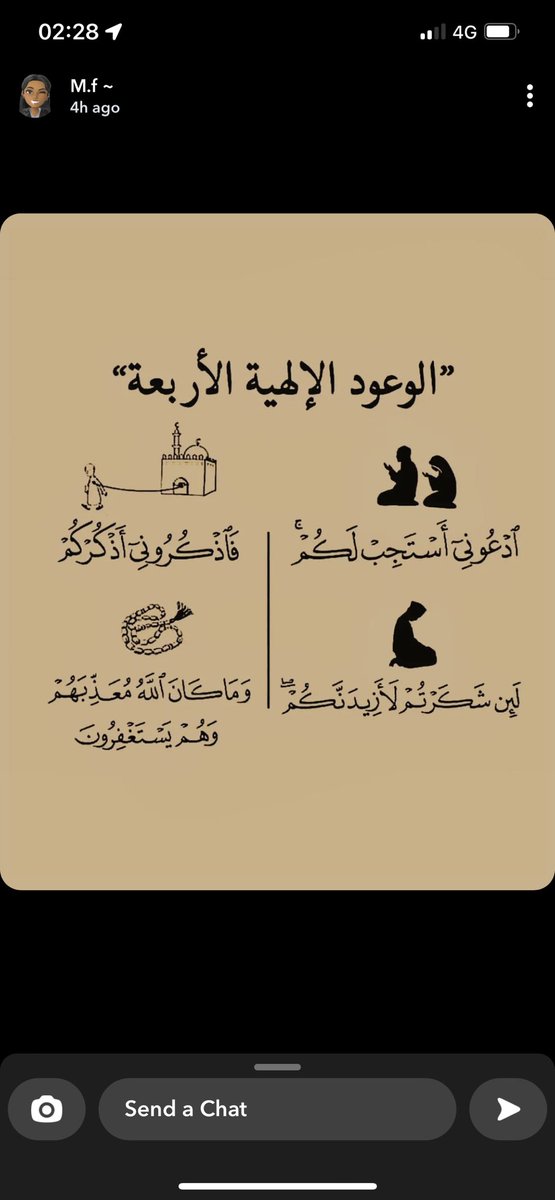 02:28
4G
M.f ~
4h ago
”الوعود الإلهية الأربعة“
ٱدْعُونِىٓ أَسْتَجِبْ لَكُمْ ۚ
فَٱذْكُرُونِىٓ أَذْكُرْكُمْ
لَئِن شَكَرْتُمْ لَأَزِيدَنَّكُمْ ۖ
وَمَا كَانَ ٱللَّهُ مُعَذِّبَهُمْ
وَهُمْ يَسْتَغْفِرُونَ
Send a Chat